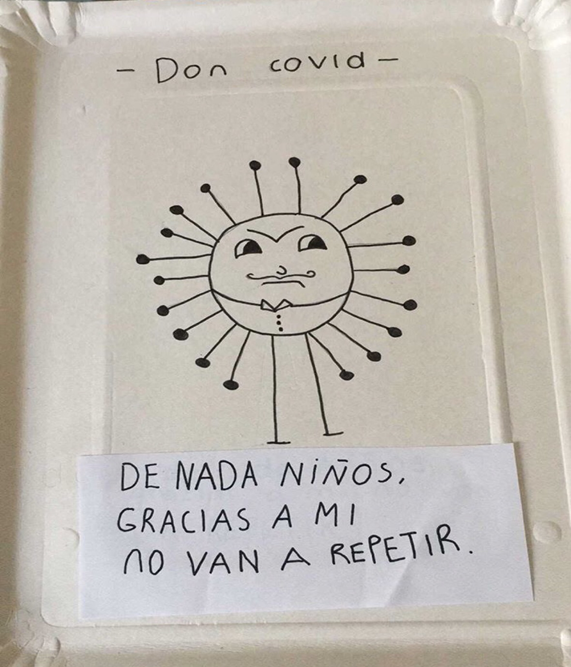 - Don covid -
DE NADA NIÑOS,
GRACIAS A MI
NO VAN A REPETIR.